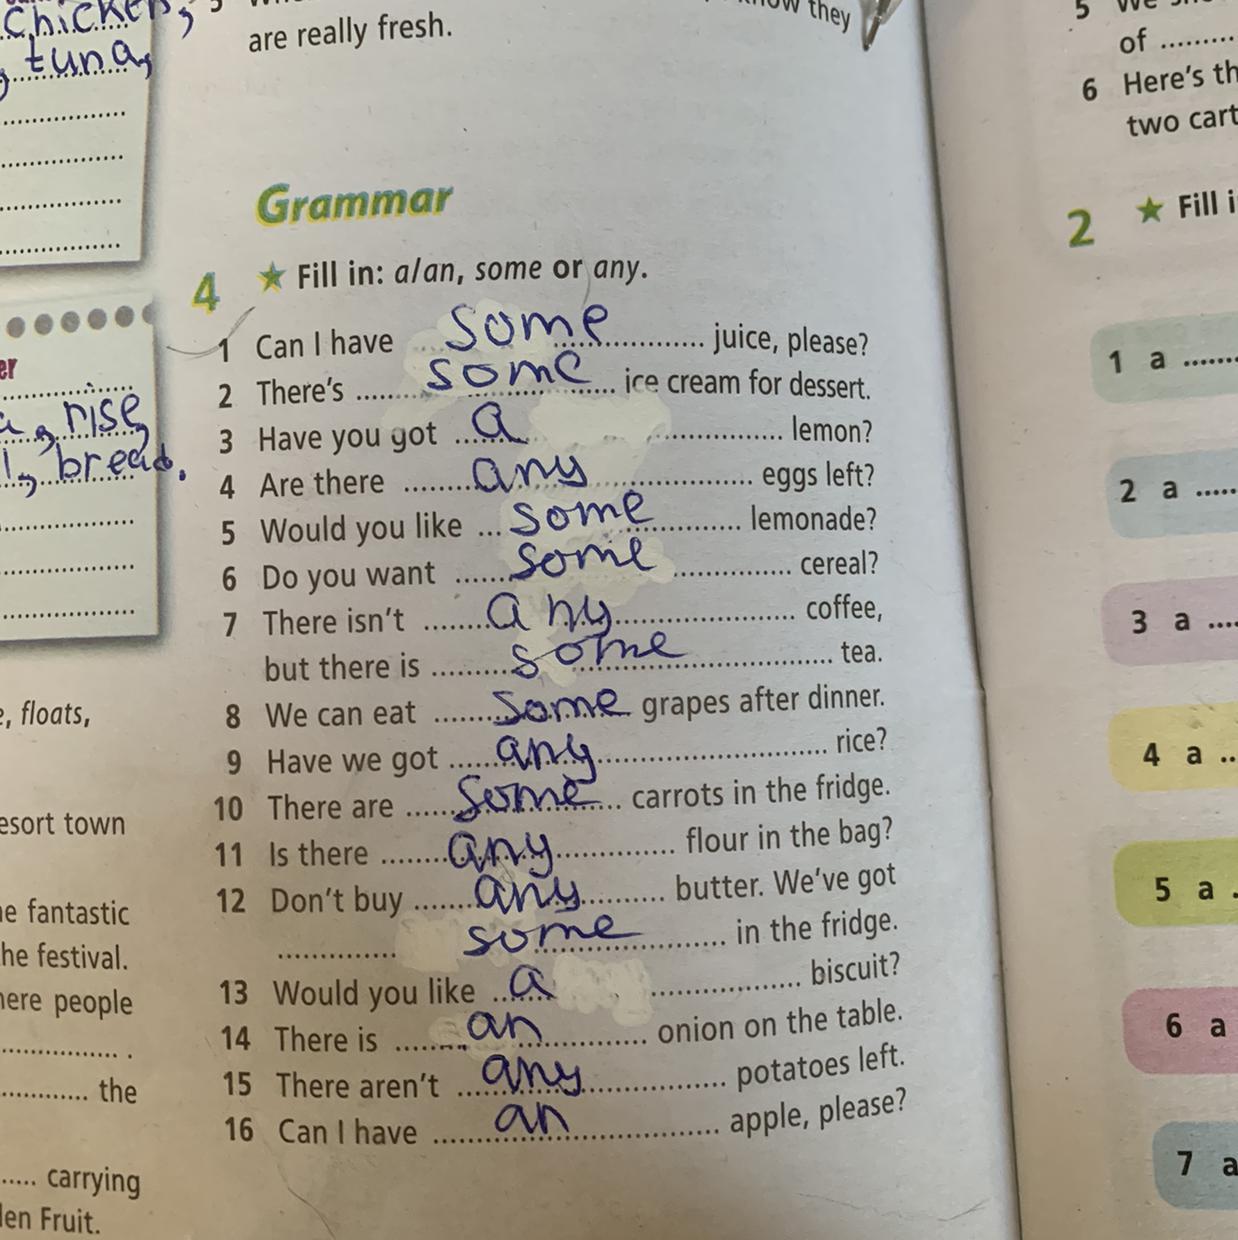 chicken,
tuna,
are really fresh.
they
Grammar
4 ★ Fill in: a/an, some or any.
1 Can I have some juice, please?
2 There's some ice cream for dessert.
3 Have you got a lemon?
4 Are there any eggs left?
5 Would you like some lemonade?
6 Do you want some cereal?
7 There isn't any coffee,
but there is some tea.
8 We can eat some grapes after dinner.
9 Have we got any rice?
10 There are some carrots in the fridge.
11 Is there any flour in the bag?
12 Don't buy any butter. We've got
some in the fridge.
13 Would you like a biscuit?
14 There is an onion on the table.
15 There aren't any potatoes left.
16 Can I have an apple, please?
rise
bread.
floats,
town
fantastic
the festival.
people
the
carrying
Fruit.
5 We
of
6 Here's
two
2 ★ Fill
1 a
2 a
3 a
4 a
5 a
6 a
7 a